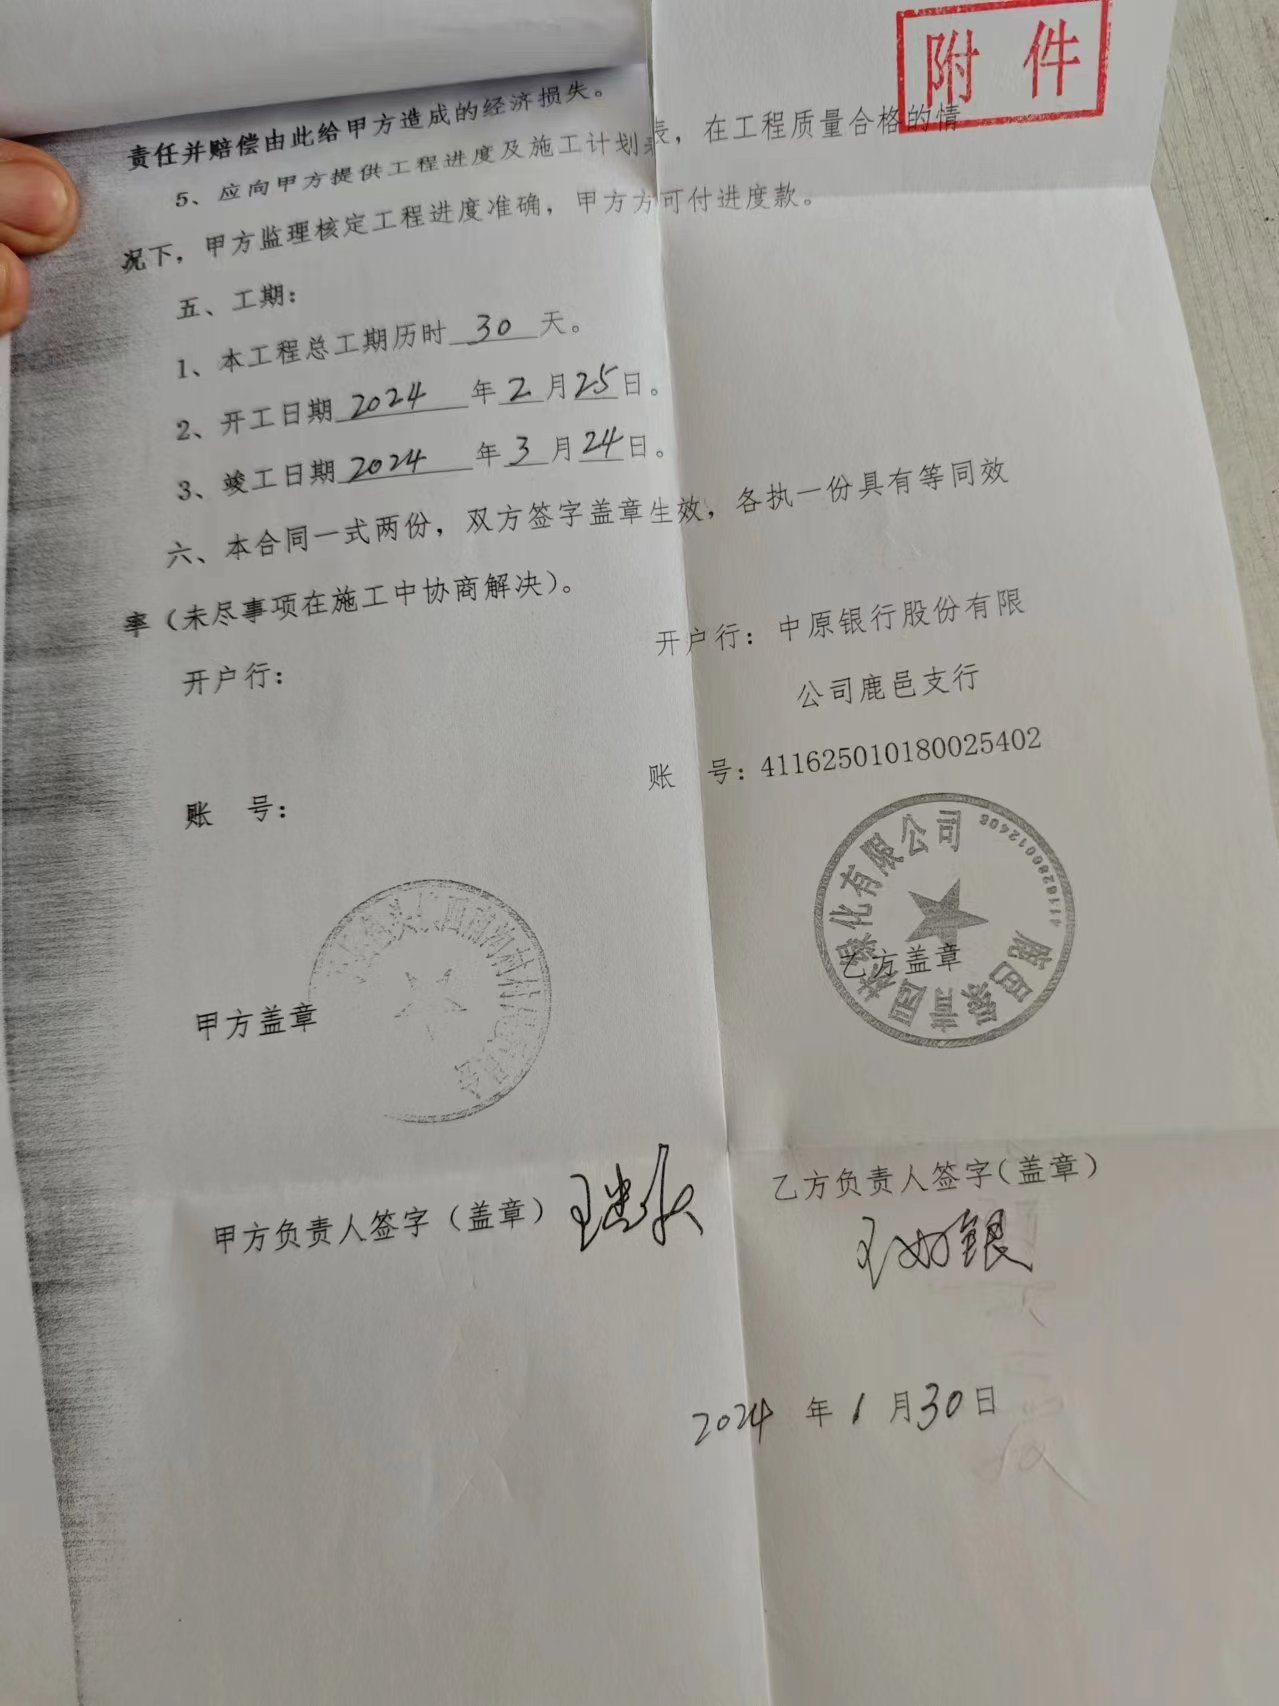 附件
责任并赔偿由此给甲方造成的经济损失。
5、应向甲方提供工程进度及施工计划表，在工程质量合格的情
况下，甲方监理核定工程进度准确，甲方方可付进度款。
五、工期：
1、本工程总工期历时 30 天。
2、开工日期 2024 年 2 月 25 日。
3、竣工日期 2024 年 3 月 24 日。
六、本合同一式两份，双方签字盖章生效，各执一份具有等同效
率（未尽事项在施工中协商解决）。
开户行： 开户行：中原银行股份有限
公司鹿邑支行
账 号： 账 号：411625010180025402
甲方盖章 乙方盖章
鹿邑 园林绿化有限公司
甲方负责人签字（盖章） 乙方负责人签字（盖章）
2024 年 1 月 30 日